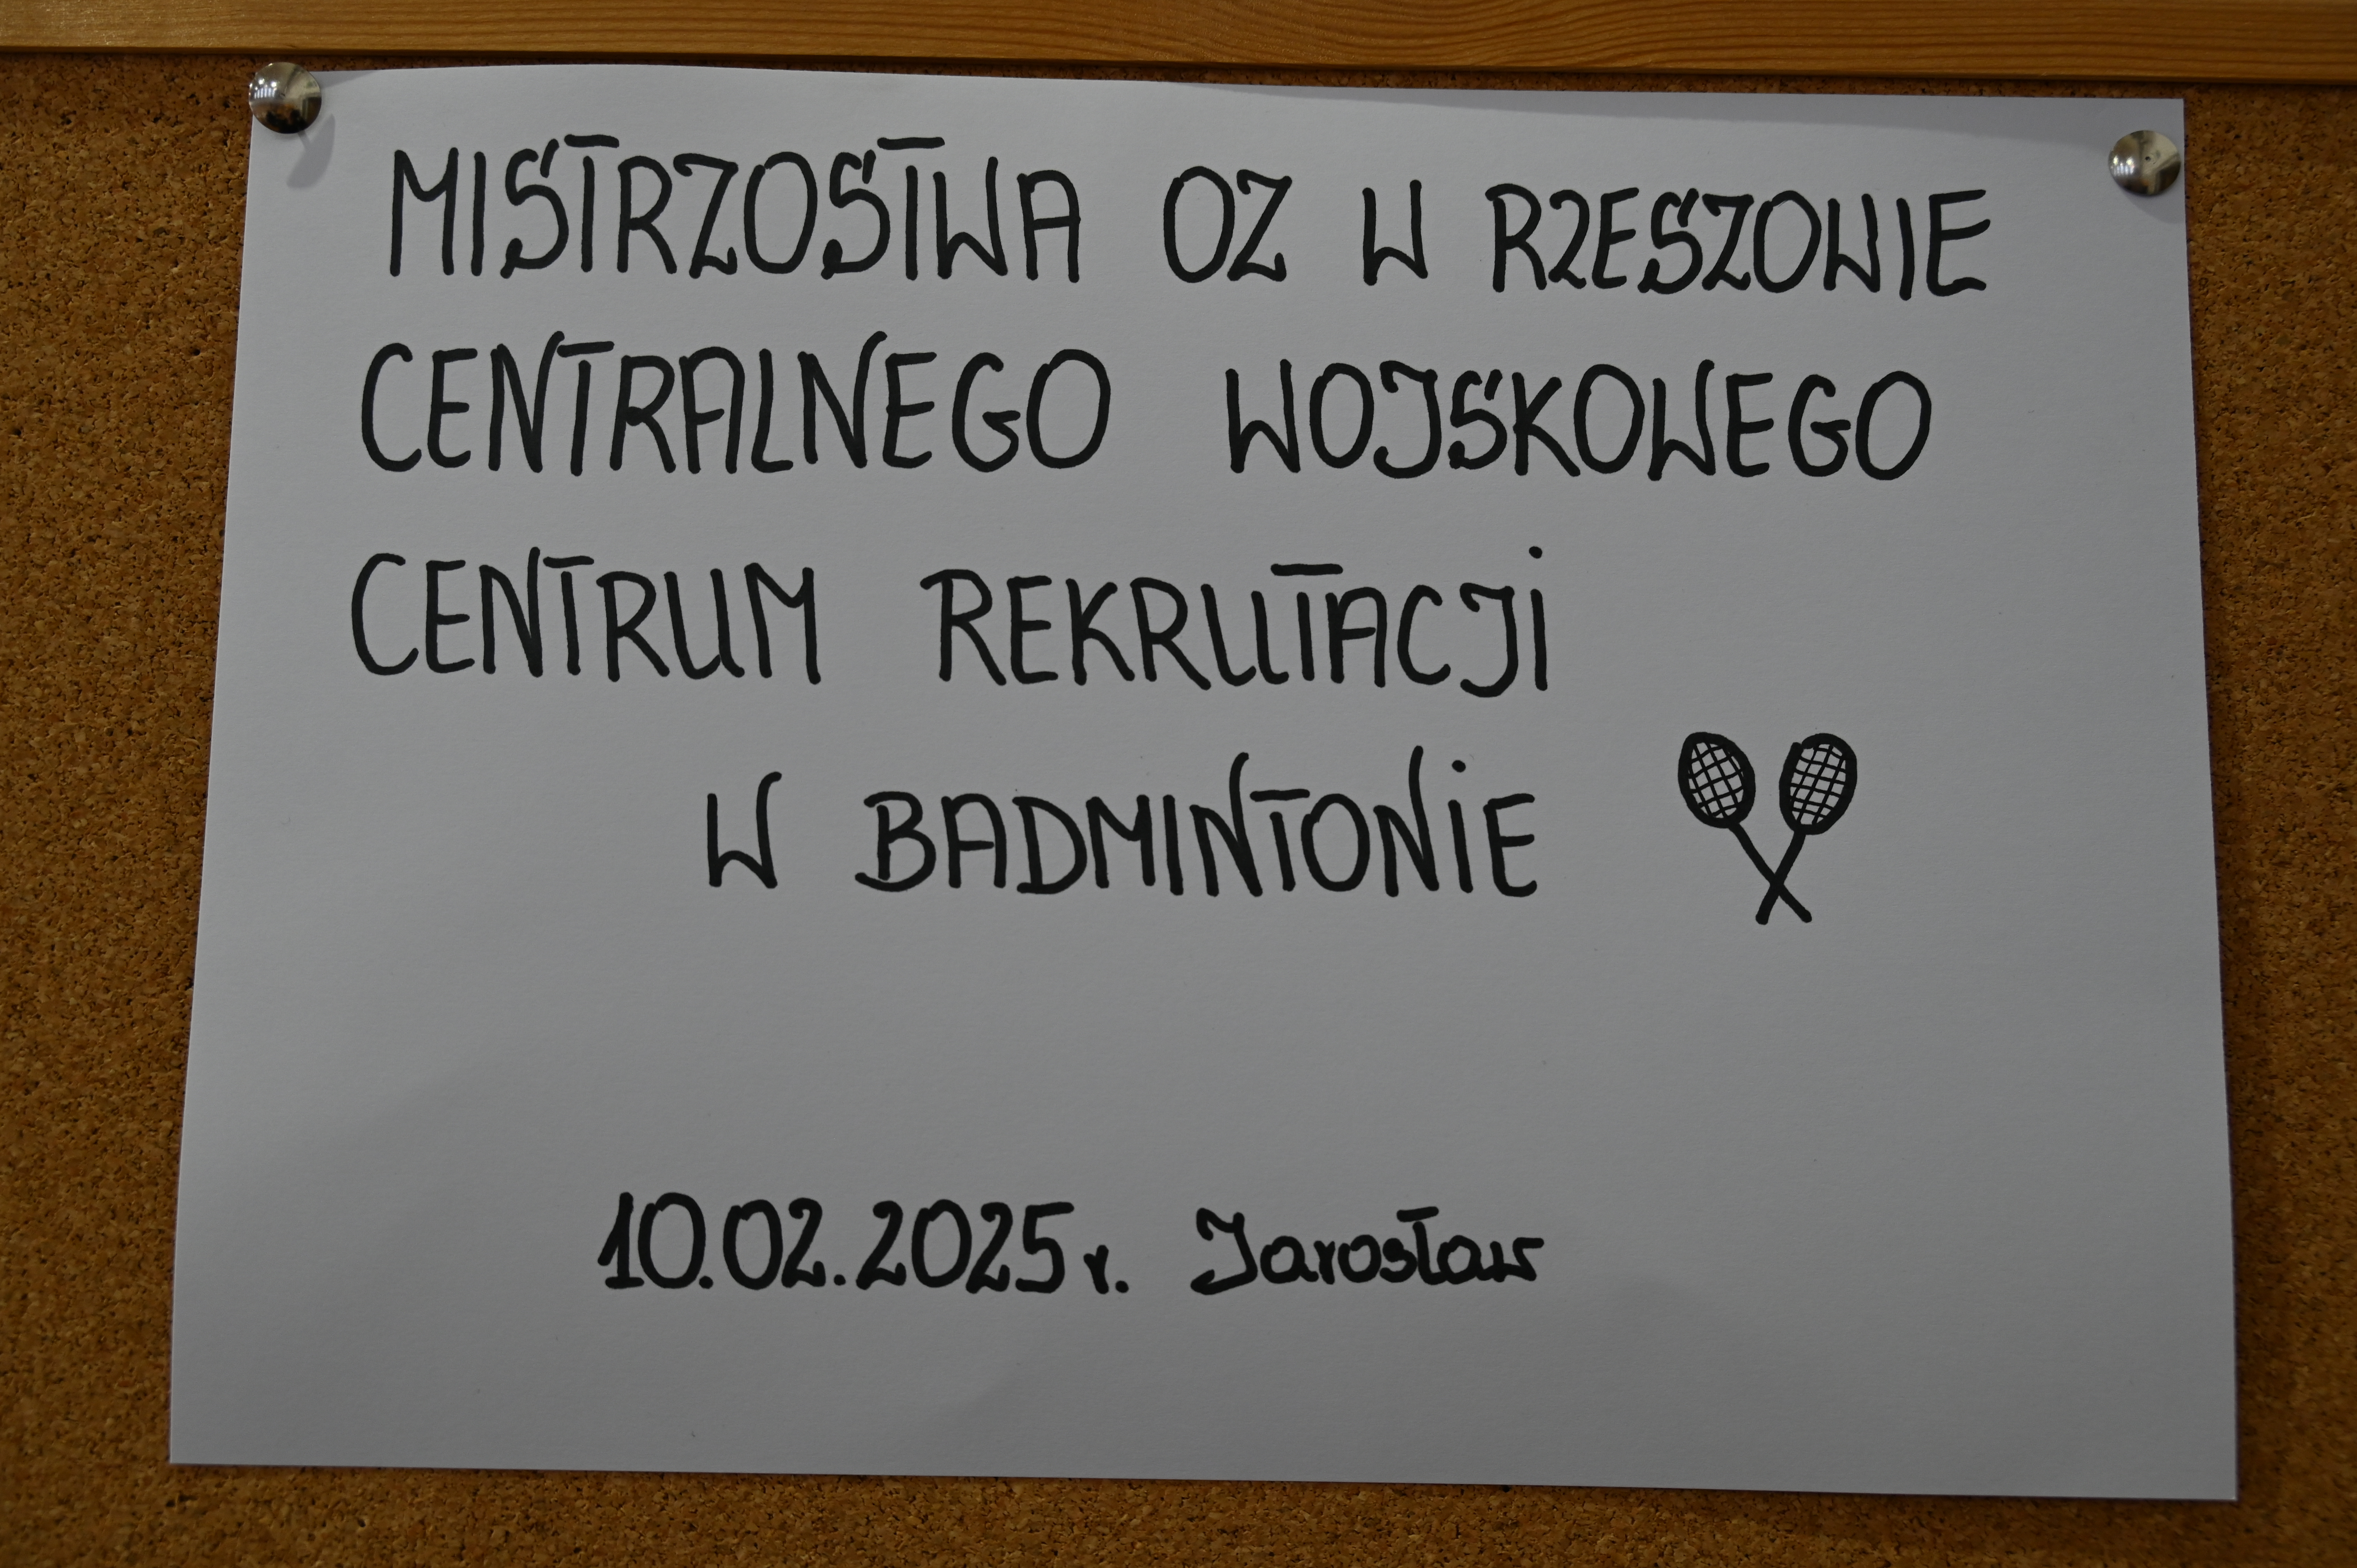 MISTRZOSTWA OZ W RZESZOWIE
CENTRALNEGO WOJSKOWEGO
CENTRUM REKRUTACJI
W BADMINTONIE
10.02.2025r. Jarosław